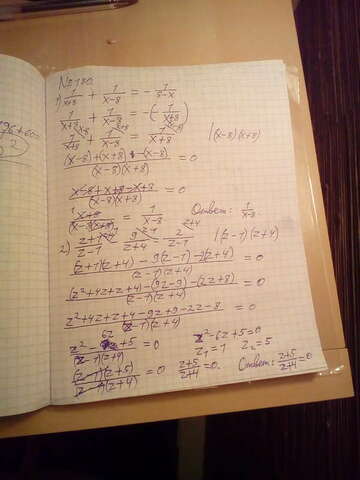 № 130.
1) 1/(x+8) + 1/(x-8) = - 1/(8-x)
1/(x+8) + 1/(x-8) = -( 1/(x+8) )
1/(x+8) + 1/(x-8) = 1/(x+8) |(x-8)(x+8)
((x-8)+(x+8)-(x-8))/((x-8)(x+8)) = 0
(x-8+x+8-x+8)/((x-8)(x+8)) = 0
(x+8)/((x-8)(x+8)) = 1/(x-8) Ответ: 1/(x-8)
2) (z+1)/(z-1) - 9/(z+4) - 2/(z-1) |(z-1)(z+4)
((z+1)(z+4) - 9(z-1) - 2(z+4))/((z-1)(z+4)) = 0
(z²+4z+z+4-(9z-9)-(2z+8))/((z-1)(z+4)) = 0
(z²+4z+z+4-9z+9-2z-8)/((z-1)(z+4)) = 0
(z²-6z+5)/((z-1)(z+4)) = 0 z²-6z+5=0
z₁=1 z₂=5
((z-1)(z+5))/((z-1)(z+4)) = 0 (z+5)/(z+4) = 0. Ответ: (z+5)/(z+4) = 0